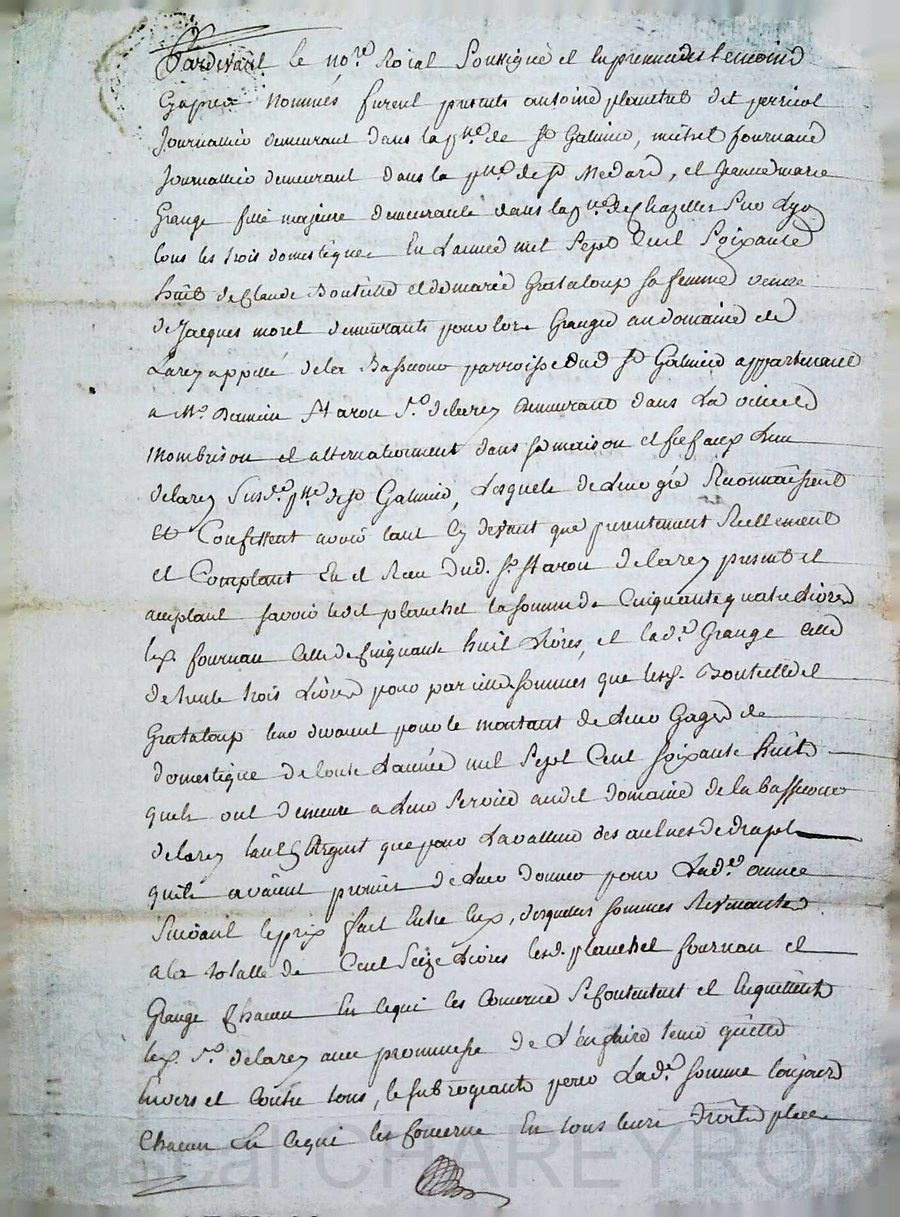 Pardevant le nore. Roial Soussigné et en presence des temoins
Cy apres nommés furent presents antoine planchet dit perricol
Journallié demeurant dans la psse. de St Galmier, michel fournand
Journallié demeurant dans la psse. de St Medard, et Jeanne marie
Grange fille majeure demeurante dans la psse. de Chazelles Sur Lyon
tous les trois domestiques En L'année mil Sept Cent Soixante
huit de Claude Bouteille et de marie Grataloup sa femme veuve
de Jacques morel demeurants pour lors Grangé au domaine de
Larey appellé de la Bassecour parroisse dud. St Galmier appartenant
a Mr. Damien Staron Sr. delarey demeurant dans La ville de
Monbrison et alternativement dans sa maison et fief aux Lieu
delarey Susd. psse de St Galmier, Lesquels de Leur gré Reconnaissent
Et Confessent avoir tant Cy devant que presentement Reellement
et Comptant Eu et Receu dud. Sr. Staron Delarey present et
acceptant savoir ledit planchet la somme de Cinquante quatre Livres
led. fournan Celle de Cinquante huit Livres, et lade. Grange Celle
de trente trois Livres pour pareilles sommes que lesd. Bouteille et
Grataloup leur devoient pour le montant de Leur Gages de
domestique De toute L'année mil Sept Cent soixante huit
quels ont demeuré a Leur Service audit domaine de la bassecour
delarey tant En Argent que pour La valleur des aulnes de drap
quils avoient promis de Leur donner pour Lade. année
Suivant le prix fait Entre Eux, desquelles sommes Revenantes
a la totalle de Cent Seize Livres lesd. planchet fournan et
Grange Chacun En ce qui les Concerne Se Contentent et En quittent
led. Sr. delarey avec promesse de L'en faire tenir quitte
Envers et Contre tous, le subrogeants pour Lade. somme toujours
Chacun En ce qui les Concerne En tous leurs Droits place
Pascal CHAREYRON